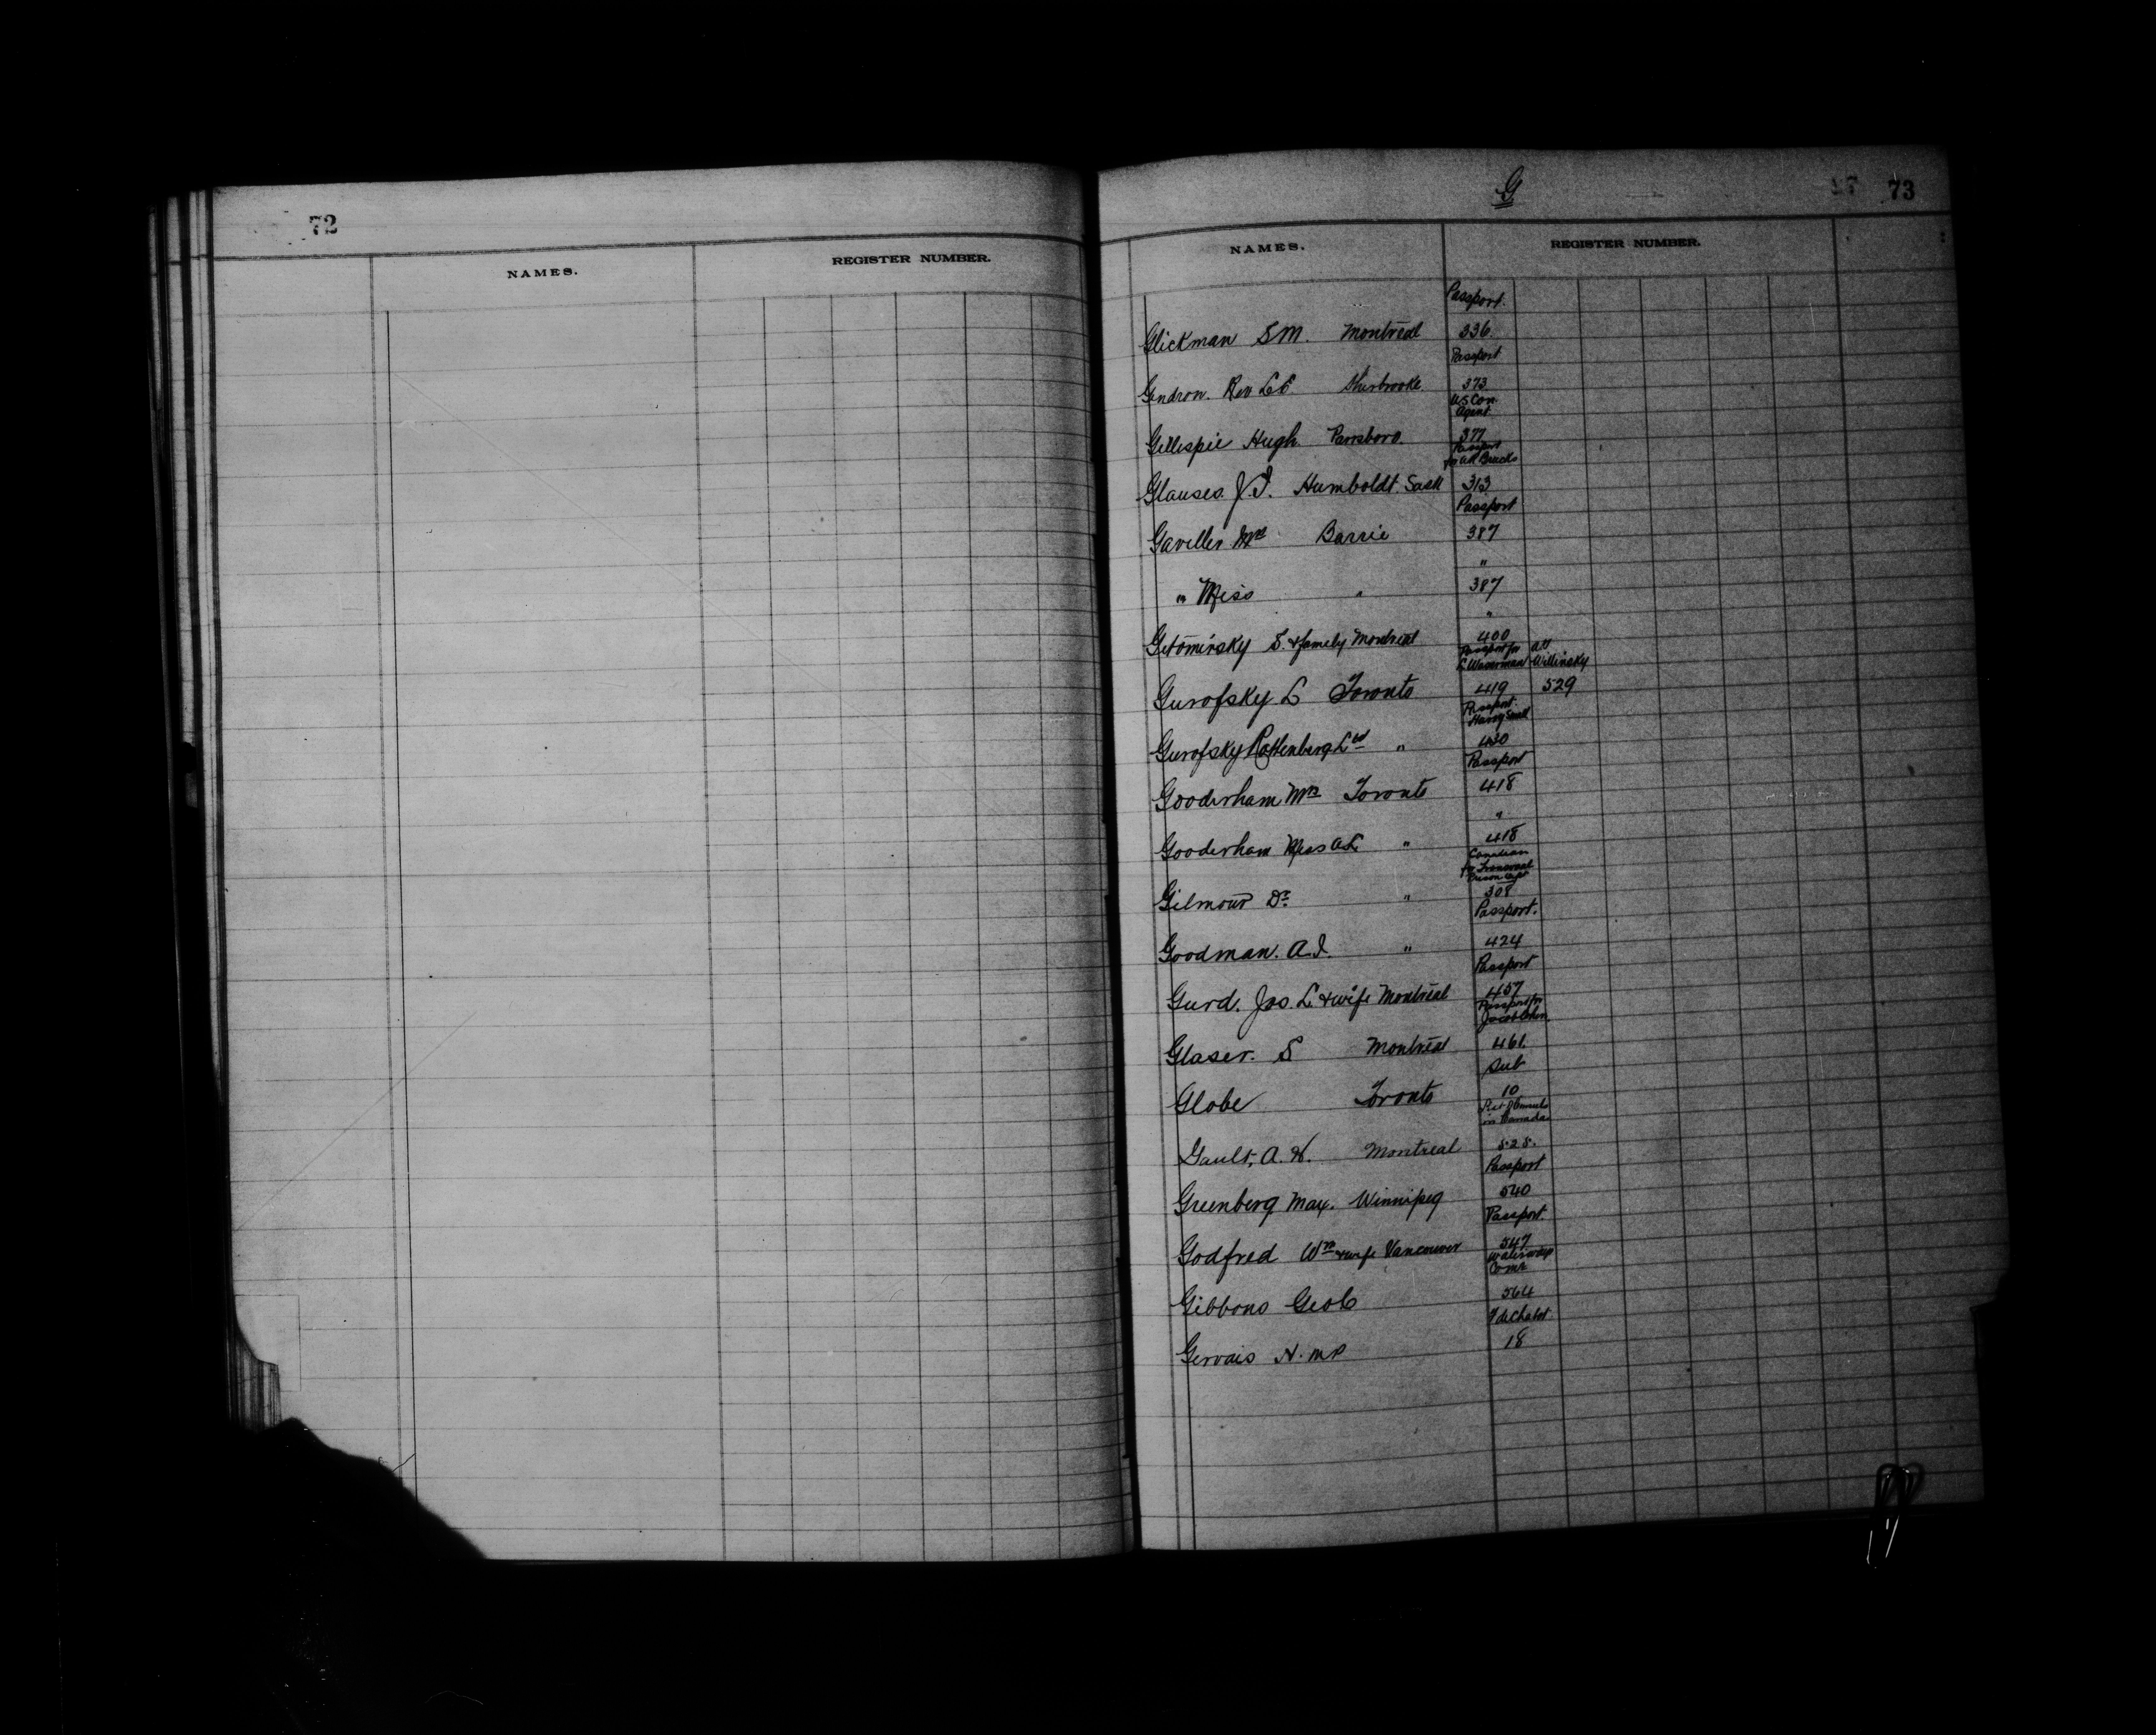 72
NAMES.
REGISTER NUMBER.
G
73
NAMES.
REGISTER NUMBER.
Passport.
Glickman S M. Montreal 336.
Passport
Gendron. Rev Sherbrooke. 373
U S Con. Agent
Gillespie Hugh. Parrsboro. 377
Passport
Glauses. J. I. Humboldt. Sask 313
Passport
Gaviller Mrs Barrie 387
"
" Miss " 387
"
Getomirsky S. & family Montreal 400
Passport for
Willinsky
Gurofsky L Toronto 419 529
Passport
Gurofsky Rottenberg Ltd " 430
Passport
Gooderham Mrs Toronto 418
"
Gooderham Miss A L " 418
Canadian
Gilmour Dr. " 308
Passport.
Goodman. A. I. " 424
Passport
Gurd. Jos. L & wife Montreal 457
Passport for
Jacob Cohen
Glaser. S Montreal 461.
Sub
Globe Toronto 10
in Canada
Gault, A. H. Montreal 525.
Passport
Greenberg Max. Winnipeg 540
Passport.
Godfred Wm & wife Vancouver 547
Waterways
Comm
Gibbons Geo C 564
Gervais H. MP 18